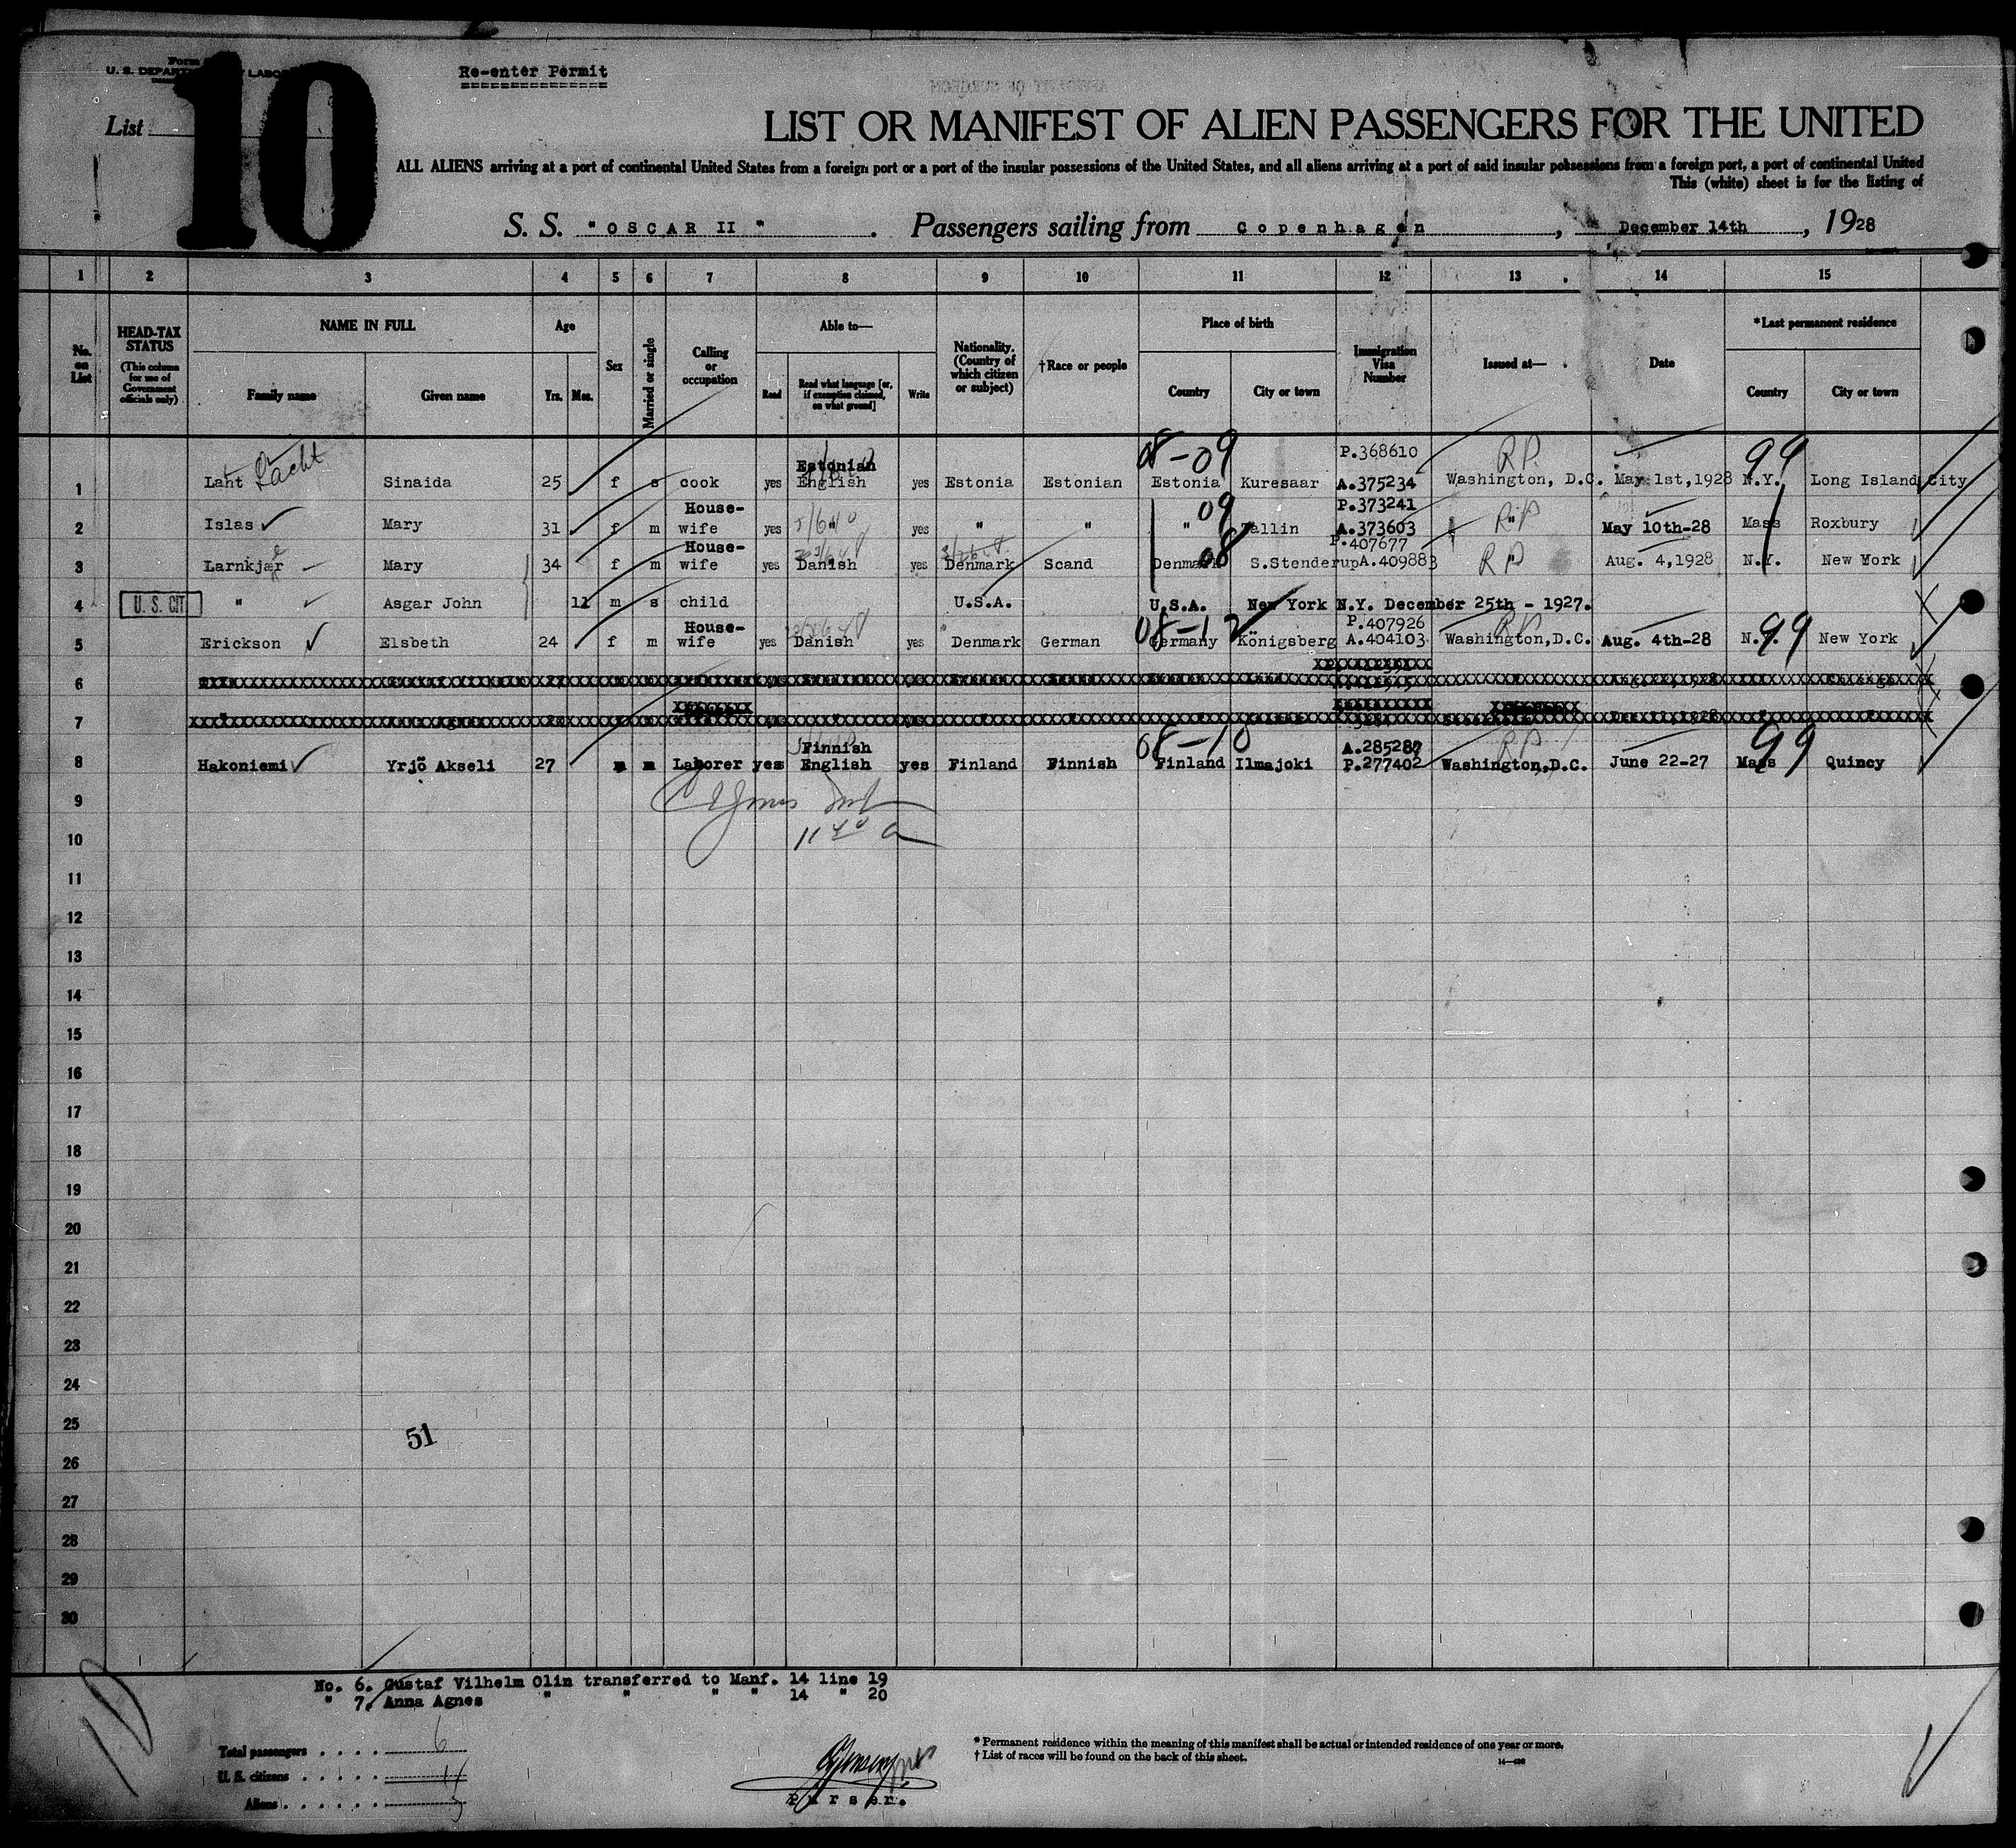 Form
U. S. DEPARTMENT LABOR
Re-enter Permit
List
10
LIST OR MANIFEST OF ALIEN PASSENGERS FOR THE UNITED
ALL ALIENS arriving at a port of continental United States from a foreign port or a port of the insular possessions of the United States, and all aliens arriving at a port of said insular possessions from a foreign port, a port of continental United
This (white) sheet is for the listing of
S. S. "OSCAR II". Passengers sailing from Copenhagen, December 14th, 1928
1 2 3 4 5 6 7 8 9 10 11 12 13 14 15
No. on List
HEAD-TAX STATUS (This column for use of Government officials only)
NAME IN FULL Family name Given name
Age Yrs. Mos.
Sex
Married or single
Calling or occupation
Able to— Read Read what language [or, if exemption claimed, on what ground] Write
Nationality. (Country of which citizen or subject)
†Race or people
Place of birth Country City or town
Immigration Visa Number
Issued at—
Date
*Last permanent residence Country City or town
08-09 P.368610 RP 99
1 Laht Lacht Sinaida 25 f s cook yes Estonian English yes Estonia Estonian Estonia Kuresaar A.375234 Washington, D.C. May 1st,1928 N.Y. Long Island City
09 P.373241 RP
2 Islas Mary 31 f m House-wife yes " yes " " " Tallin A.373603 " May 10th-28 Mass Roxbury
08 P.407677 RP
3 Larnkjær Mary 34 f m House-wife yes Danish yes Denmark Scand Denmark S.Stenderup A.409883 " Aug. 4,1928 N.Y. New York
4 U. S. CIT " Asgar John 11 m s child U.S.A. U.S.A. New York N.Y. December 25th - 1927.
08-12 P.407926 RP 99
5 Erickson Elsbeth 24 f m House-wife yes Danish yes Denmark German Germany Königsberg A.404103 Washington,D.C. Aug. 4th-28 N.Y. New York
6 Chicago
7
08-10 A.285287 RP 99
8 Hakoniemi Yrjö Akseli 27 m m Laborer yes Finnish English yes Finland Finnish Finland Ilmajoki P.277402 Washington,D.C. June 22-27 Mass Quincy
9
10
11
12
13
14
15
16
17
18
19
20
21
22
23
24
25
51
26
27
28
29
30
No. 6. Gustaf Vilhelm Olin transferred to Manf. 14 line 19
" 7. Anna Agnes " " " " 14 " 20
Total passengers . . . . 6
U. S. citizens . . . . . 1
Aliens . . . . . . 5
Purser.
* Permanent residence within the meaning of this manifest shall be actual or intended residence of one year or more.
† List of races will be found on the back of this sheet.